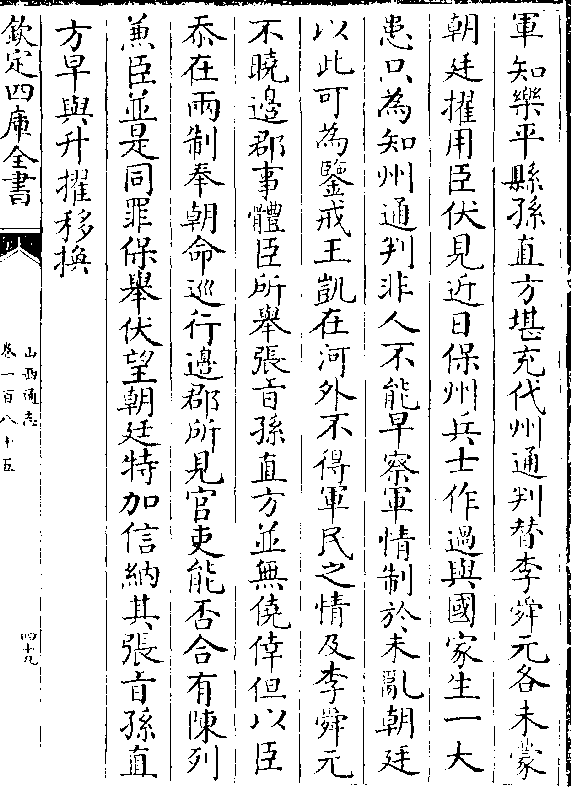 軍知樂平縣孫直方堪充代州通判替李舜元各未蒙
朝廷擢用臣伏見近日保州兵士作過與國家生一大
患只為知州通判非人不能早察軍情制於未亂朝廷
以此可為鑒戒王凱在河外不得軍民之情及李舜元
不曉邊郡事體臣所舉張旨孫直方並無僥倖但以臣
忝在兩制奉朝命巡行邊郡所見官吏能否合有陳列
兼臣並是同罪保舉伏望朝廷特加信納其張旨孫直
方早與升擢移換
欽定四庫全書
山西通志
卷一百八十五
四十九